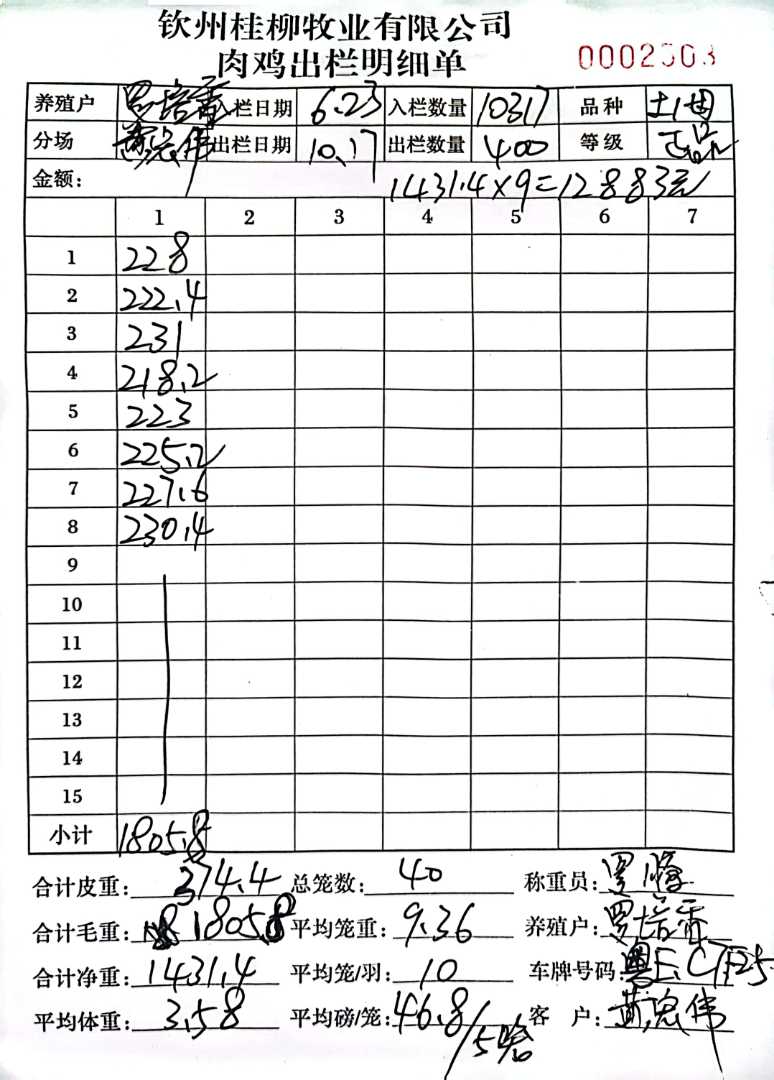 钦州桂柳牧业有限公司
肉鸡出栏明细单
养殖户 罗培 入栏日期 6.23 入栏数量 10317 品种 土1
分场 黄宏伟 出栏日期 10.17 出栏数量 400 等级 正品
金额: 1431.4×9=12883元
1 2 3 4 5 6 7
1 228
2 222.4
3 231
4 218.2
5 223
6 225.2
7 227.6
8 230.4
9
10
11
12
13
14
15
小计 1805.8
合计皮重: 374.4 总笼数: 40 称重员: 罗
合计毛重: 1805.8 平均笼重: 9.36 养殖户: 罗培
合计净重: 1431.4 平均笼/羽: 10 车牌号码: 粤E
平均体重: 3.58 平均磅/笼: 46.8/5 客户: 黄宏伟